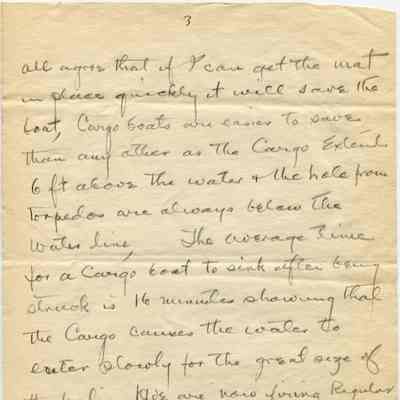 3
all agree that if I can get the mat
in place quickly it will save the
boat, Cargo boats are easier to save
than any other as the Cargo Extends
6 ft above the water & the hole from
torpedos are always below the
water line, The average time
for a Cargo boat to sink after being
struck is 16 minutes showing that
the Cargo causes the water to
enter slowly for the great size of
the hole. We are now firing Regular